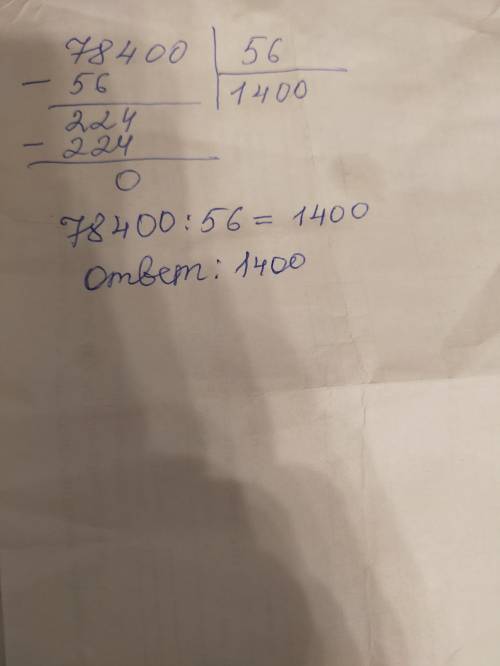 78400 56
- 56 1400
224
- 224
0
78400 : 56 = 1400
Ответ: 1400